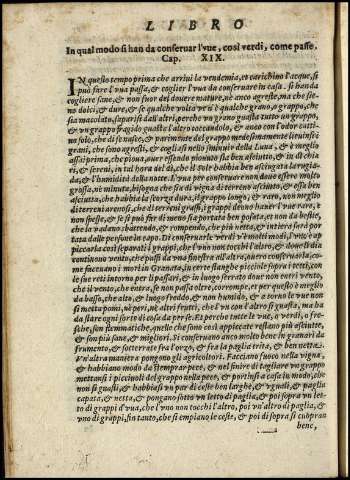 LIBRO
In qual modo si han da conseruar l'vue, così verdi, come passe.
Cap. XIX.
IN questo tempo prima che arriui la vendemia, et carichino l'acque, si
può fare l'vua passa, & coglier l'vua da conseruare in casa. si han da
cogliere sane, & non fuor del douere mature, nè anco agreste, ma che sie-
no dolci, & dure, & se qualche volta ve n'è qualche grano, o grappo, che
sia macolato, separisi da gli altri, perche vn grano guasta tutto vn grappo,
& vn grappo fragido guasta l'altro toccandolo, & anco con l'odor catti-
no solo, che di se nasce, & parimente del grappo medesimamente leuinsi i
grani, che sono agresti, & coglasi nello sminuir della Luna, & è meglio
assai prima, che pioua, ouer essendo piouuto sia ben asciutto, & in dì chia
ri, & sereni, in tal hora del dì, che il Sole habbia ben asciugata la rugia-
da, & l'humidità della notte. L'vua per conseruare non deue essere molto
grossa, nè minuta, bisogna che sia di vigna di terreno asciutto, & essa ben
asciutta, che habbia la scorza dura, i grappi lunghi, & rari, non meglio
di terreni arenosi, che di terreni grassi, i grappi deono hauer l'vue rare, &
non spesse, & se si può far di meno sia portata ben posata, et non da bestie,
che la vadano sbattendo, & rompendo, che più netta, & intiera sarà por
tata dalle persone in capo. Di conseruarle verdi v'è molti modi, l'vno è ap
piccarla così separati i grappi, che l'vno non tocchi l'altro, & doue li dia
continouo vento, che passi da vna finestra all'altra, ouero conseruarla, co-
me faceuano i mori in Granata, in certe stanghe picciole sopra i tetti, con
le sue reti intorno per li passari, & in luogo serrato doue non entri vento,
che il vento, che entra, & non passa oltre, corrompe, et per questo è meglio
da basso, che alto, & luogo freddo, & non humido, & a torno le vue non
si metta pomi, nè peri, nè altri frutti, che l'vn con l'altro si guasta, ma ha
da stare ogni sorte di cosa da per se. Et perche tutte le vue, o verdi, o fre-
sche, son flemmatiche, quello che sono così appiccate restano più asciutte,
& son più sane, & migliori. Si conseruano anco molto bene in granari da
frumento, & sotterrate fra l'orzo, & fra la paglia trita, & ben netta.
Vn'altra maniera pongono gli agricoltori. Facciano fuoco nella vigna,
& habbiano modo da stemprar pece, & nel finire di tagliare vn grappo
mettansi i piccinoli del grappo nella pece, & portinsi a casa in modo, che
non si guasti, & habbiasi vn par di ceste ben larghe, & vguali, & paglia
capata, & nesta, & pongano sotto vn letto di paglia, & poi sopra vn let-
to di grappi d'vua, che l'vno non tocchi l'altro, poi vn'altro di paglia, &
vno di grappi, fin tanto, che si empiano le ceste, & poi di sopra si cuopran
bene,